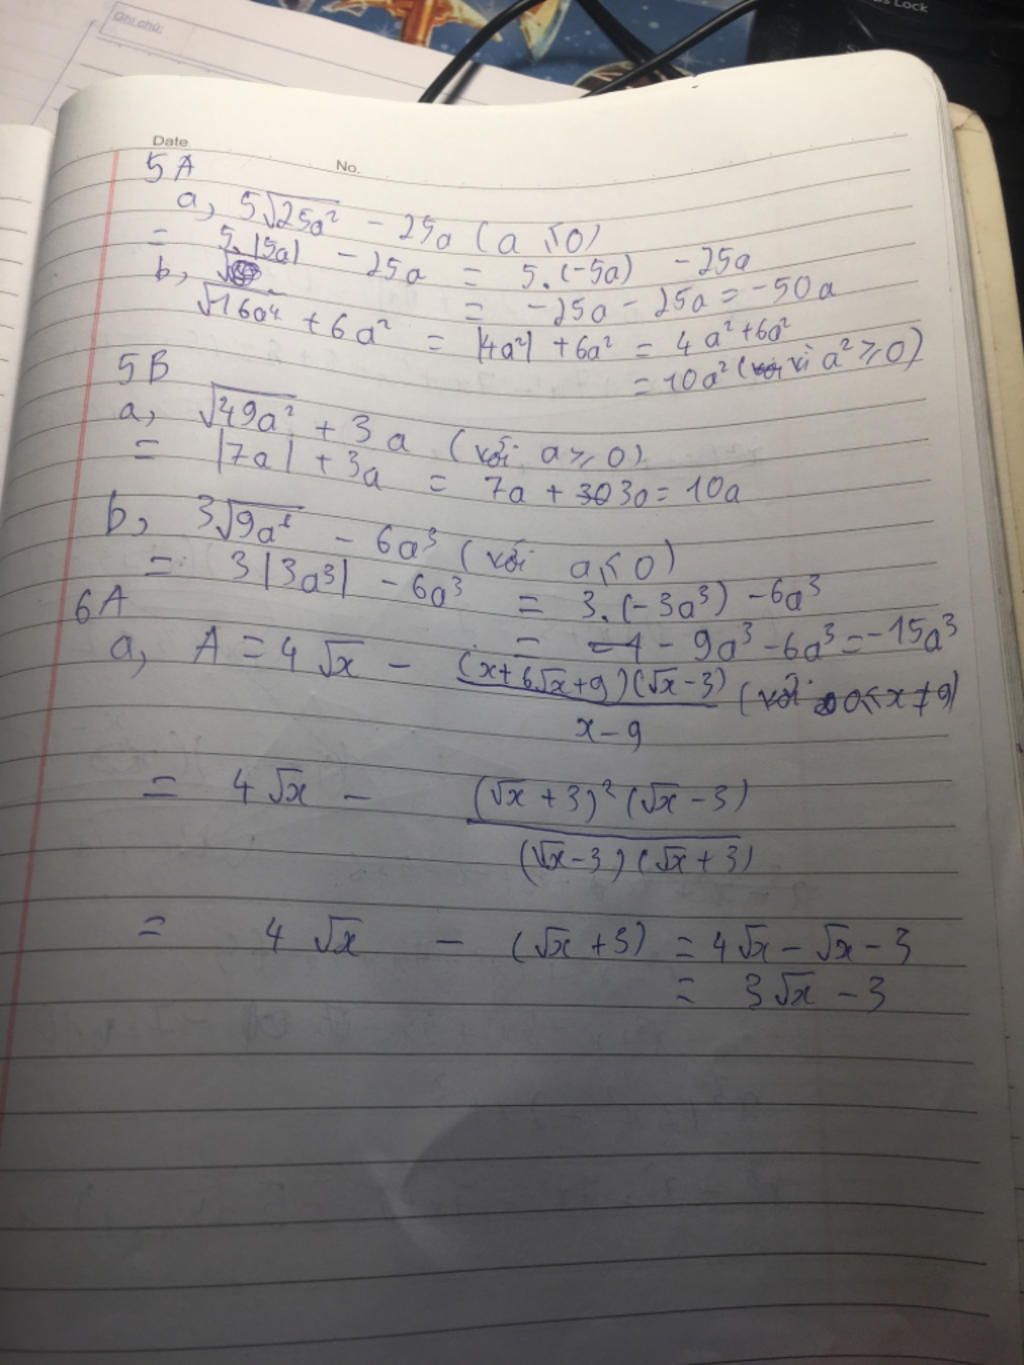 Ghi chú:
Lock
Date
No.
5A
a, 5√25a² - 25a (a ≤ 0)
= 5.|5a| - 25a = 5.(-5a) - 25a
= -25a - 25a = -50a
b,
√16a⁴ + 6a² = |4a²| + 6a² = 4a² + 6a²
= 10a² (vì a² ≥ 0)
5B
a, √49a² + 3a (với a ≥ 0)
= |7a| + 3a = 7a + 3a = 10a
b, 3√9a⁶ - 6a³ (với a ≤ 0)
= 3|3a³| - 6a³ = 3.(-3a³) - 6a³
= - 9a³ - 6a³ = -15a³
6A
a, A = 4√x - (x+6√x+9)(√x-3) (với 0 ≤ x ≠ 9)
x-9
= 4√x - (√x + 3)² (√x - 3)
(√x-3)(√x+3)
= 4√x - (√x + 3) = 4√x - √x - 3
= 3√x - 3